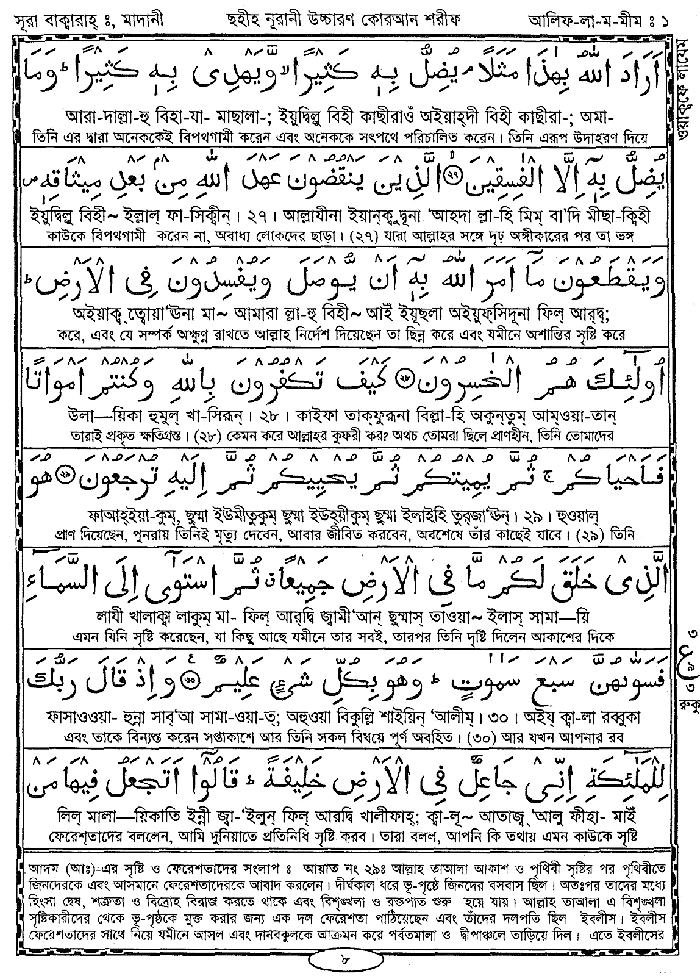 সূরা বাক্বারাহ্ ঃ, মাদানী ছহীহ নূরানী উচ্চারণ কোরআন শরীফ আলিফ-লা-ম-মীম ঃ ১
اَرَادَ اللهُ بِهٰذَا مَثَلًا ۘ يُضِلُّ بِهٖ كَثِيْرًا ۙ وَّيَهْدِىْ بِهٖ كَثِيْرًا ؕ وَمَا
ওয়াকফে লাযেম
আরা-দাল্লা-হু বিহা-যা- মাছালা-; ইয়ুদ্বিল্লু বিহী কাছীরাওঁ অইয়াহ্দী বিহী কাছীরা-; অমা-
তিনি এর দ্বারা অনেককেই বিপথগামী করেন এবং অনেককে সৎপথে পরিচালিত করেন। তিনি এরূপ উদাহরণ দিয়ে
يُضِلُّ بِهٖٓ اِلَّا الْفٰسِقِيْنَ ۙ﴿۲۶﴾ الَّذِيْنَ يَنْقُضُوْنَ عَهْدَ اللهِ مِنْۢ بَعْدِ مِيْثَاقِهٖ ۪
ইয়ুদ্বিল্লু বিহী~ ইল্লাল্ ফা-সিক্বীন্। ২৭। আল্লাযীনা ইয়ান্ক্বুদ্বূনা ‘আহদা ল্লা-হি মিম্ বা’দি মীছা-ক্বিহী
কাউকে বিপথগামী করেন না, অবাধ্য লোকদের ছাড়া। (২৭) যারা আল্লাহর সঙ্গে দৃঢ় অঙ্গীকারের পর তা ভঙ্গ
وَيَقْطَعُوْنَ مَآ اَمَرَ اللهُ بِهٖٓ اَنْ يُّوْصَلَ وَيُفْسِدُوْنَ فِى الْاَرْضِ ؕ
অইয়াক্ব্ত্বোয়া‘ঊনা মা~ আমারা ল্লা-হু বিহী~ আইঁ ইয়ূছলা অইয়ুফ্সিদূনা ফিল্ আরদ্ব্;
করে, এবং যে সম্পর্ক অক্ষুণ্ন রাখতে আল্লাহ নির্দেশ দিয়েছেন তা ছিন্ন করে এবং যমীনে অশান্তির সৃষ্টি করে
اُولٰٓئِكَ هُمُ الْخٰسِرُوْنَ ﴿۲۷﴾ كَيْفَ تَكْفُرُوْنَ بِاللهِ وَكُنْتُمْ اَمْوَاتًا
উলা—য়িকা হুমুল্ খা-সিরূন্। ২৮। কাইফা তাক্ফুরূনা বিল্লা-হি অকুন্তুম্ আম্ওয়া-তান্
তারাই প্রকৃত ক্ষতিগ্রস্ত। (২৮) কেমন করে আল্লাহর কুফরী কর? অথচ তোমরা ছিলে প্রাণহীন, তিনি তোমাদের
فَاَحْيَاكُمْ ۚ ثُمَّ يُمِيْتُكُمْ ثُمَّ يُحْيِيْكُمْ ثُمَّ اِلَيْهِ تُرْجَعُوْنَ ﴿۲۸﴾ هُوَ
ফাআহ্ইয়া-কুম্, ছুম্মা ইউমীতুকুম্ ছুম্মা ইউহ্য়ীকুম্ ছুম্মা ইলাইহি তুর্জা‘ঊন্। ২৯। হুওয়াল্
প্রাণ দিয়েছেন, পুনরায় তিনিই মৃত্যু দেবেন, আবার জীবিত করবেন, অবশেষে তাঁর কাছেই যাবে। (২৯) তিনি
الَّذِىْ خَلَقَ لَكُمْ مَّا فِى الْاَرْضِ جَمِيْعًا ٭ ثُمَّ اسْتَوٰٓى اِلَى السَّمَآءِ
লাযী খালাক্বা লাকুম্ মা- ফিল্ আর্দ্বি জ্বামী‘আন্ ছুম্মাস্ তাওয়া~ ইলাস্ সামা—য়ি
এমন যিনি সৃষ্টি করেছেন, যা কিছু আছে যমীনে তার সবই, তারপর তিনি দৃষ্টি দিলেন আকাশের দিকে
فَسَوّٰىهُنَّ سَبْعَ سَمٰوٰتٍ ؕ وَهُوَ بِكُلِّ شَىْءٍ عَلِيْمٌ ﴿۲۹﴾ وَاِذْ قَالَ رَبُّكَ
৩
ع
৩
রুকু
ফাসাওওয়া- হুন্না সাব্‘আ সামা-ওয়া-ত্; অহুওয়া বিকুল্লি শাইয়িন্ ‘আলীম্। ৩০। অইয্ ক্বা-লা রব্বুকা
এবং তাকে বিন্যস্ত করেন সপ্তাকাশে আর তিনি সকল বিষয়ে পূর্ণ অবহিত। (৩০) আর যখন আপনার রব
لِلْمَلٰٓئِكَةِ اِنِّىْ جَاعِلٌ فِى الْاَرْضِ خَلِيْفَةً ؕ قَالُوْٓا اَتَجْعَلُ فِيْهَا مَنْ
লিল্ মালা—য়িকাতি ইন্নী জ্বা-‘ইলুন্ ফিল্ আরদ্বি খালীফাহ্; ক্বা-লূ~ আতাজ্ব্‘আলু ফীহা- মাইঁ
ফেরেশ্তাদের বললেন, আমি দুনিয়াতে প্রতিনিধি সৃষ্টি করব। তারা বলল, আপনি কি তথায় এমন কাউকে সৃষ্টি
আদম (আঃ)-এর সৃষ্টি ও ফেরেশতাদের সংলাপ ঃ আয়াত নং ২৯ঃ আল্লাহ তাআলা আকাশ ও পৃথিবী সৃষ্টির পর পৃথিবীতে
জিনদেরকে এবং আসমানে ফেরেশতাদেরকে আবাদ করলেন। দীর্ঘকাল ধরে ভূ-পৃষ্ঠে জিনদের বসবাস ছিল। অতঃপর তাদের মধ্যে
হিংসা দ্বেষ, শত্রুতা ও বিদ্রোহ বিরাজ করতে থাকে এবং বিশৃঙ্খলা ও রক্তপাত শুরু হয়ে যায়। আল্লাহ তাআলা এ বিশৃঙ্খলা
সৃষ্টিকারীদের থেকে ভূ-পৃষ্ঠকে মুক্ত করার জন্য এক দল ফেরেশতা পাঠিয়েছেন এবং তাঁদের দলপতি ছিল ইবলীস। ইবলীস
ফেরেশতাদের সাথে নিয়ে যমীনে আসল এবং দানবকুলকে আক্রমন করে পর্বতমালা ও দ্বীপাঞ্চলে তাড়িয়ে দিল; এতে ইবলীসের
৮